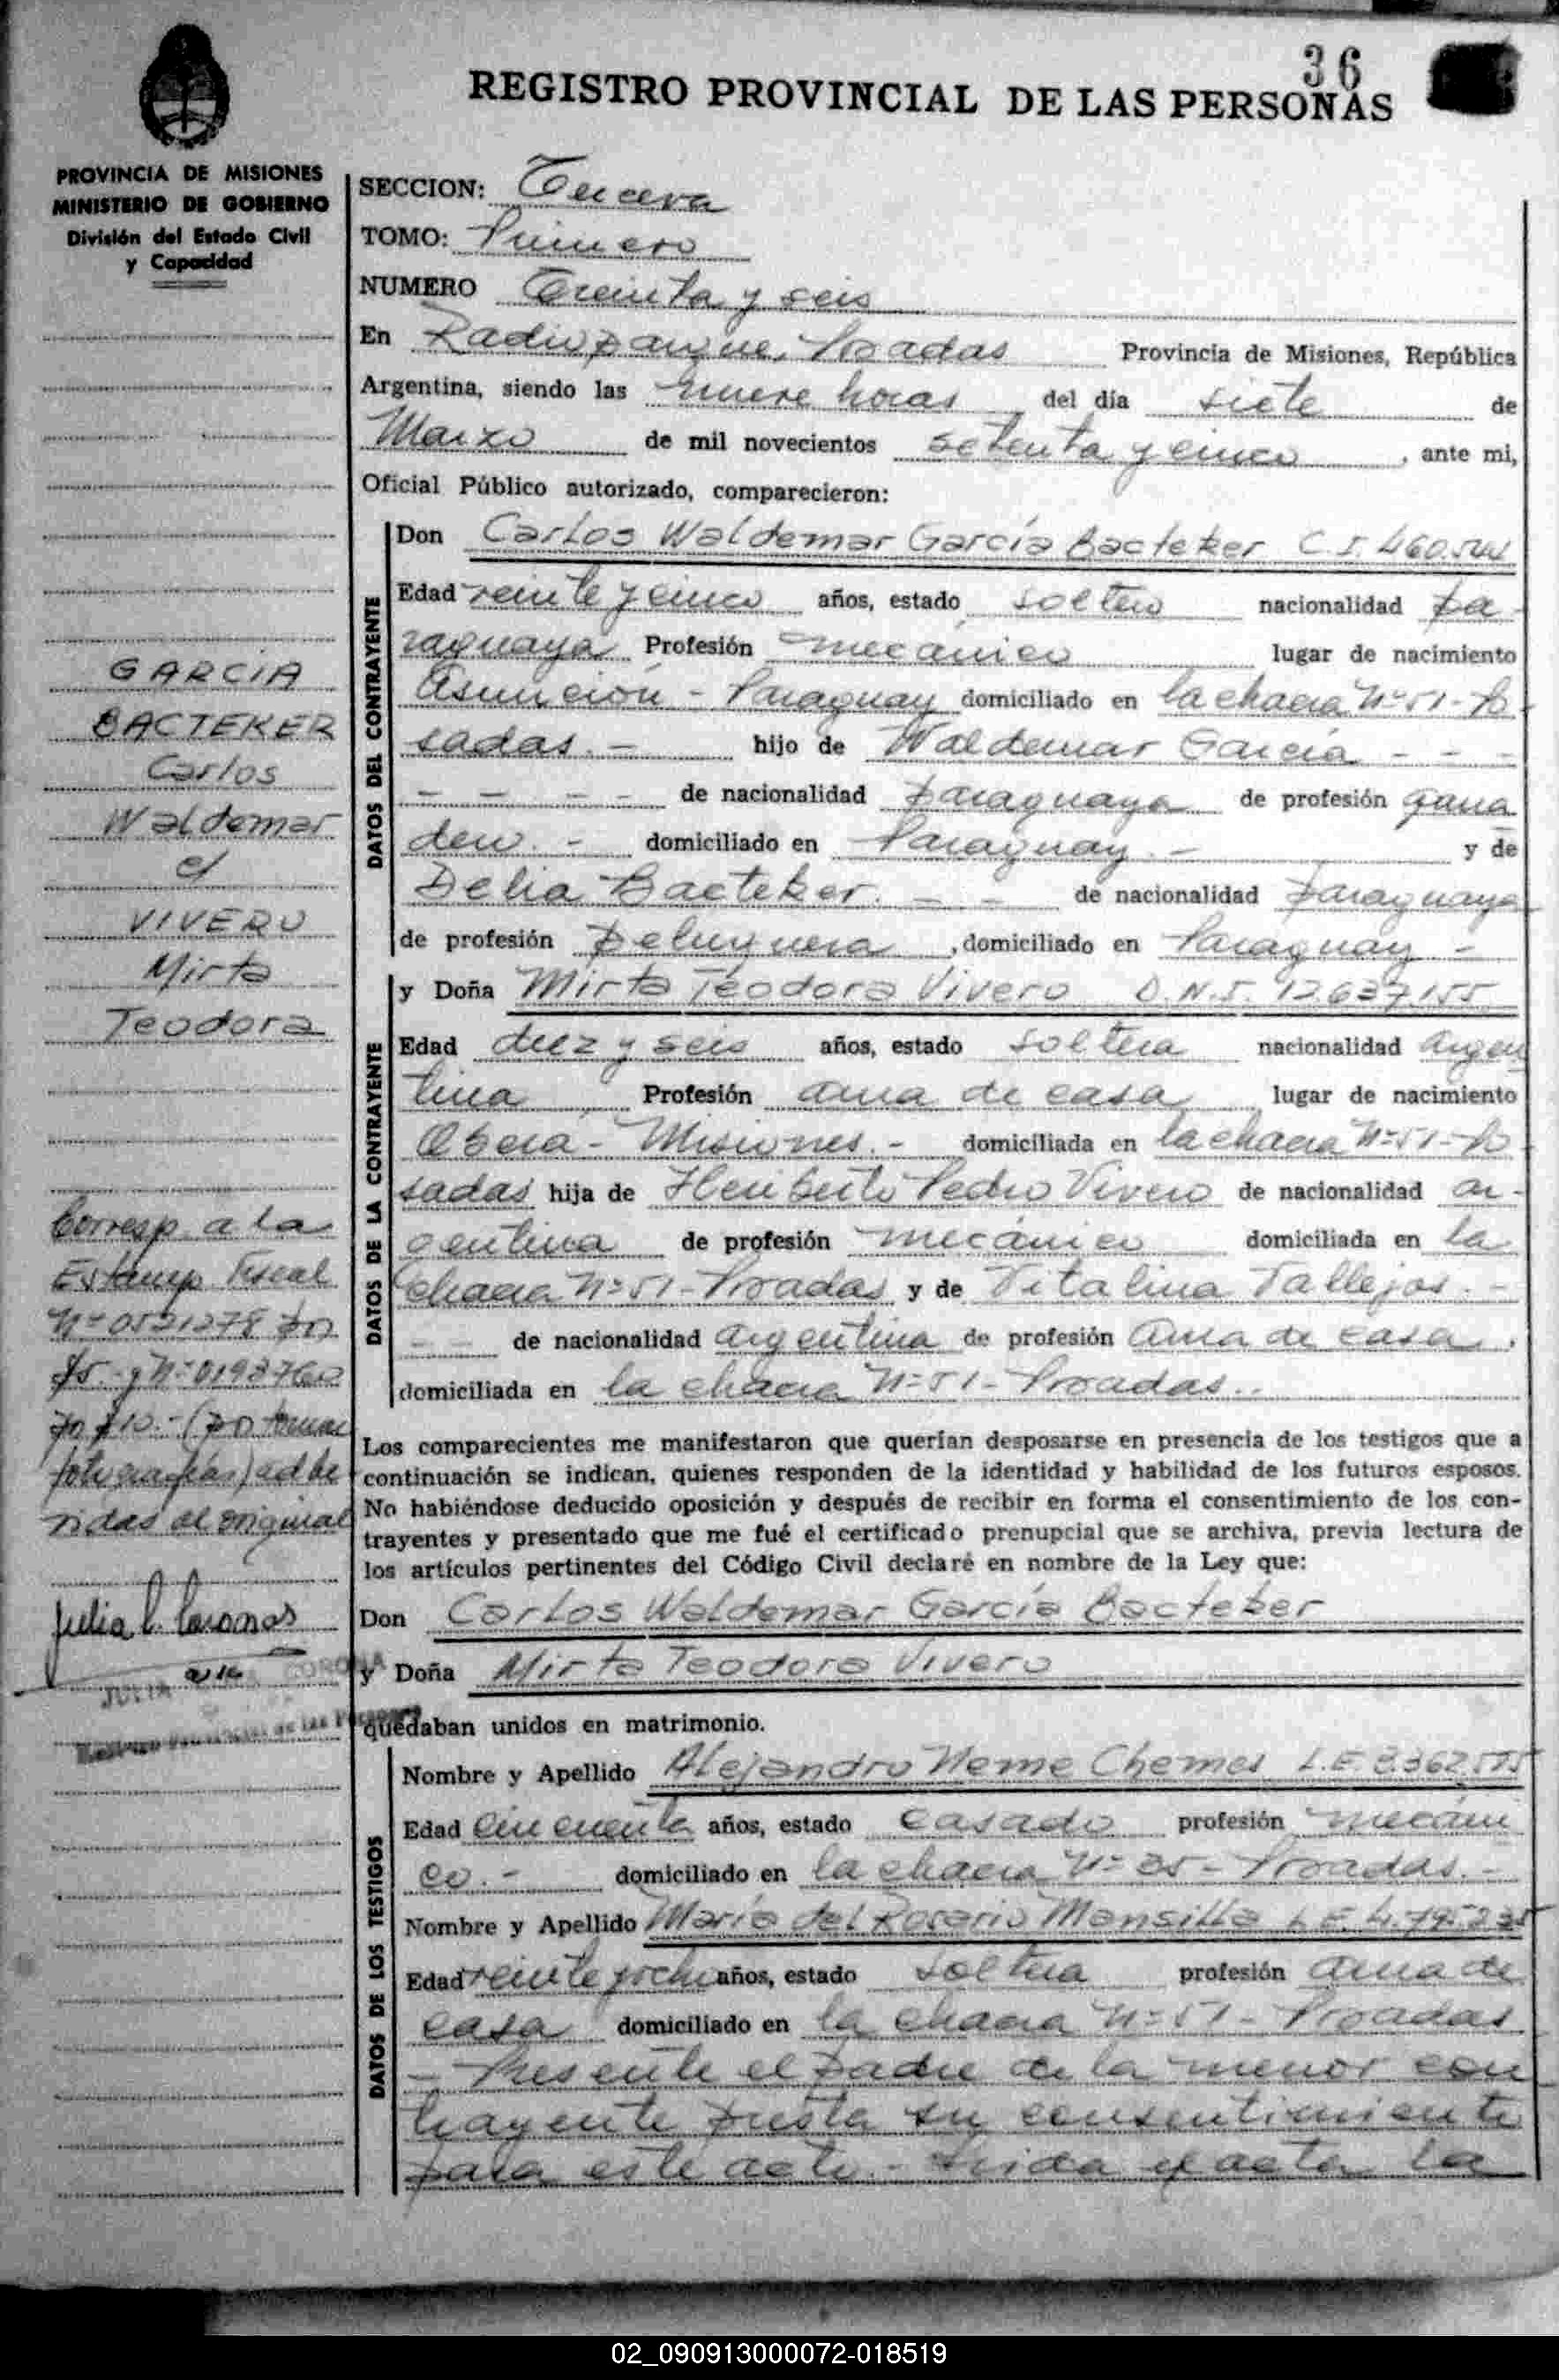 36
REGISTRO PROVINCIAL DE LAS PERSONAS
PROVINCIA DE MISIONES
MINISTERIO DE GOBIERNO
División del Estado Civil
y Capacidad
SECCION: Tercera
TOMO: Primero
NUMERO Treinta y seis
En Radioparque, Posadas Provincia de Misiones, República
Argentina, siendo las nueve horas del día siete de
Marzo de mil novecientos setenta y cinco, ante mi,
Oficial Público autorizado, comparecieron:
DATOS DEL CONTRAYENTE
Don Carlos Waldemar García Bacteker C.I. 460.541
Edad veinte y cinco años, estado soltero nacionalidad pa
raguaya Profesión mecánico lugar de nacimiento
Asunción - Paraguay domiciliado en la chacra Nº 51 - Po
sadas. - hijo de Waldemar García - - -
- - - - de nacionalidad paraguaya de profesión gana
dero. - domiciliado en Paraguay. - y de
Delia Bacteker. - - de nacionalidad paraguaya
de profesión peluquera, domiciliado en Paraguay -
DATOS DE LA CONTRAYENTE
y Doña Mirta Teodora Vivero D.N.I. 12.637.155
Edad diez y seis años, estado soltera nacionalidad argen
tina Profesión ama de casa lugar de nacimiento
Oberá - Misiones. - domiciliada en la chacra Nº 51 - Po
sadas hija de Heriberto Pedro Vivero de nacionalidad ar-
gentina de profesión mecánico domiciliada en la
chacra Nº 51 - Posadas y de Vitalina Vallejos. -
- - de nacionalidad argentina de profesión ama de casa,
domiciliada en la chacra Nº 51 - Posadas..
Los comparecientes me manifestaron que querían desposarse en presencia de los testigos que a
continuación se indican, quienes responden de la identidad y habilidad de los futuros esposos.
No habiéndose deducido oposición y después de recibir en forma el consentimiento de los con-
trayentes y presentado que me fué el certificado prenupcial que se archiva, previa lectura de
los artículos pertinentes del Código Civil declaré en nombre de la Ley que:
Don Carlos Waldemar García Bacteker
y Doña Mirta Teodora Vivero
quedaban unidos en matrimonio.
DATOS DE LOS TESTIGOS
Nombre y Apellido Alejandro Neme Chemes L.E. 3.362.575
Edad cincuenta años, estado casado profesión mecáni
co. - domiciliado en la chacra Nº 35 - Posadas. -
Nombre y Apellido María del Rosario Mansilla
Edad veinte y ocho años, estado soltera profesión ama de
casa domiciliado en la chacra Nº 51 - Posadas
- Presente el padre de la menor con
trayente presta su consentimiento
para este acto. - Leida el acta la
GARCIA
BACTEKER
Carlos
Waldemar
c/
VIVERO
Mirta
Teodora
Corresp. a la
Estamp. Fiscal
Nº 0521278 por
$5.- y Nº 0193760
por $10.- (por tomar
fotografías) adhe
ridas al original
JULIA CORONA
02_090913000072-018519